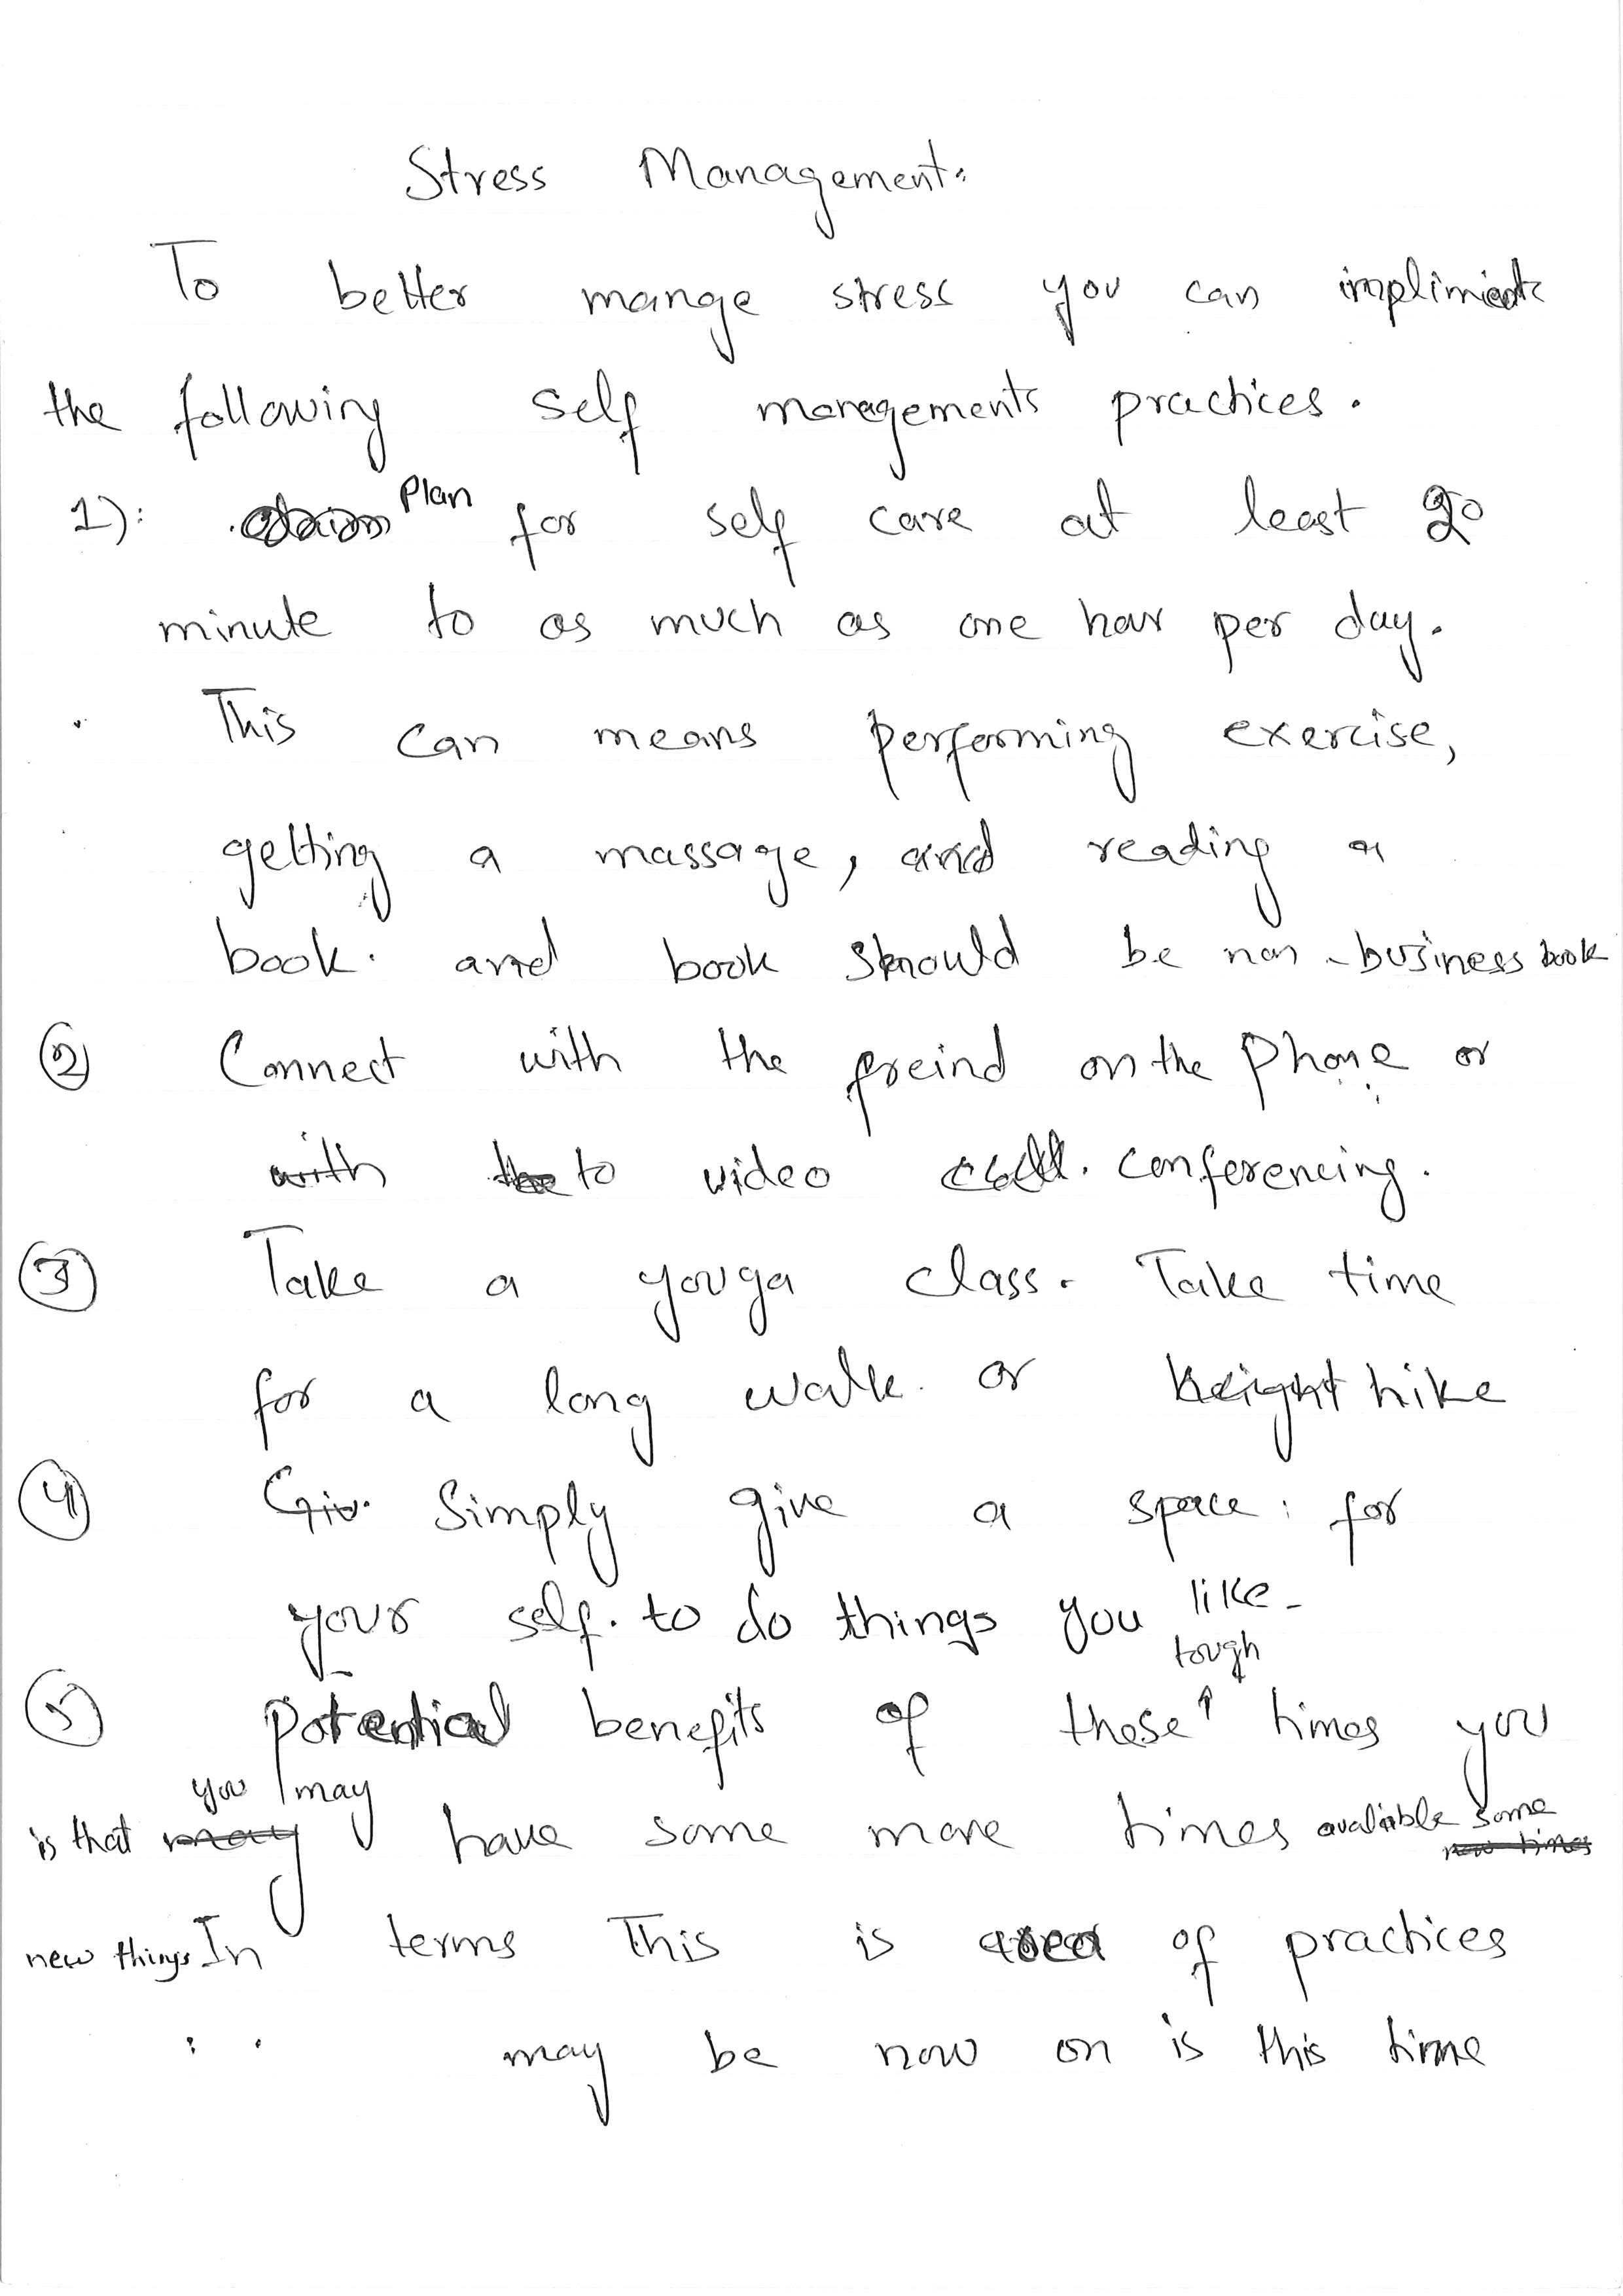 Stress Management:
To better mange stress you can impliment
the following self managements practices.
1): Plan for self care at least 20
minute to as much as one hour per day.
This can means performing exercise,
getting a massage, and reading a
book. and book should be non-business book
2 Connect with the freind on the Phone or
with the to video call. conferencing.
3 Take a youga class. Take time
for a long walk. or height hike
4 Giv. Simply give a space: for
your self. to do things you like-
tough
5 Potential benefits of these ↑ times you
you may
is that may have some more times avaliable some
new times
new things In terms This is area of practices
may be now on is this time